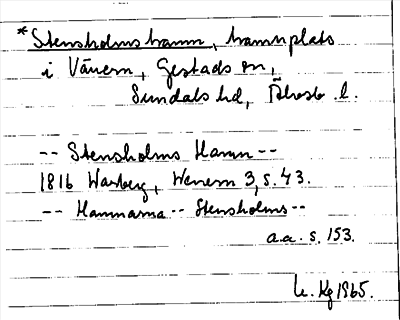 *Stensholms hamn, hamnplats
i Vänern, Gestads sn,
Sundals hd, Älvsb. l.
-- Stensholms Hamn --
1816 Warberg, Wenern 3, s. 43.
-- Hamnarna -- Stensholms --
a.a. s. 153.
Kg 1965.